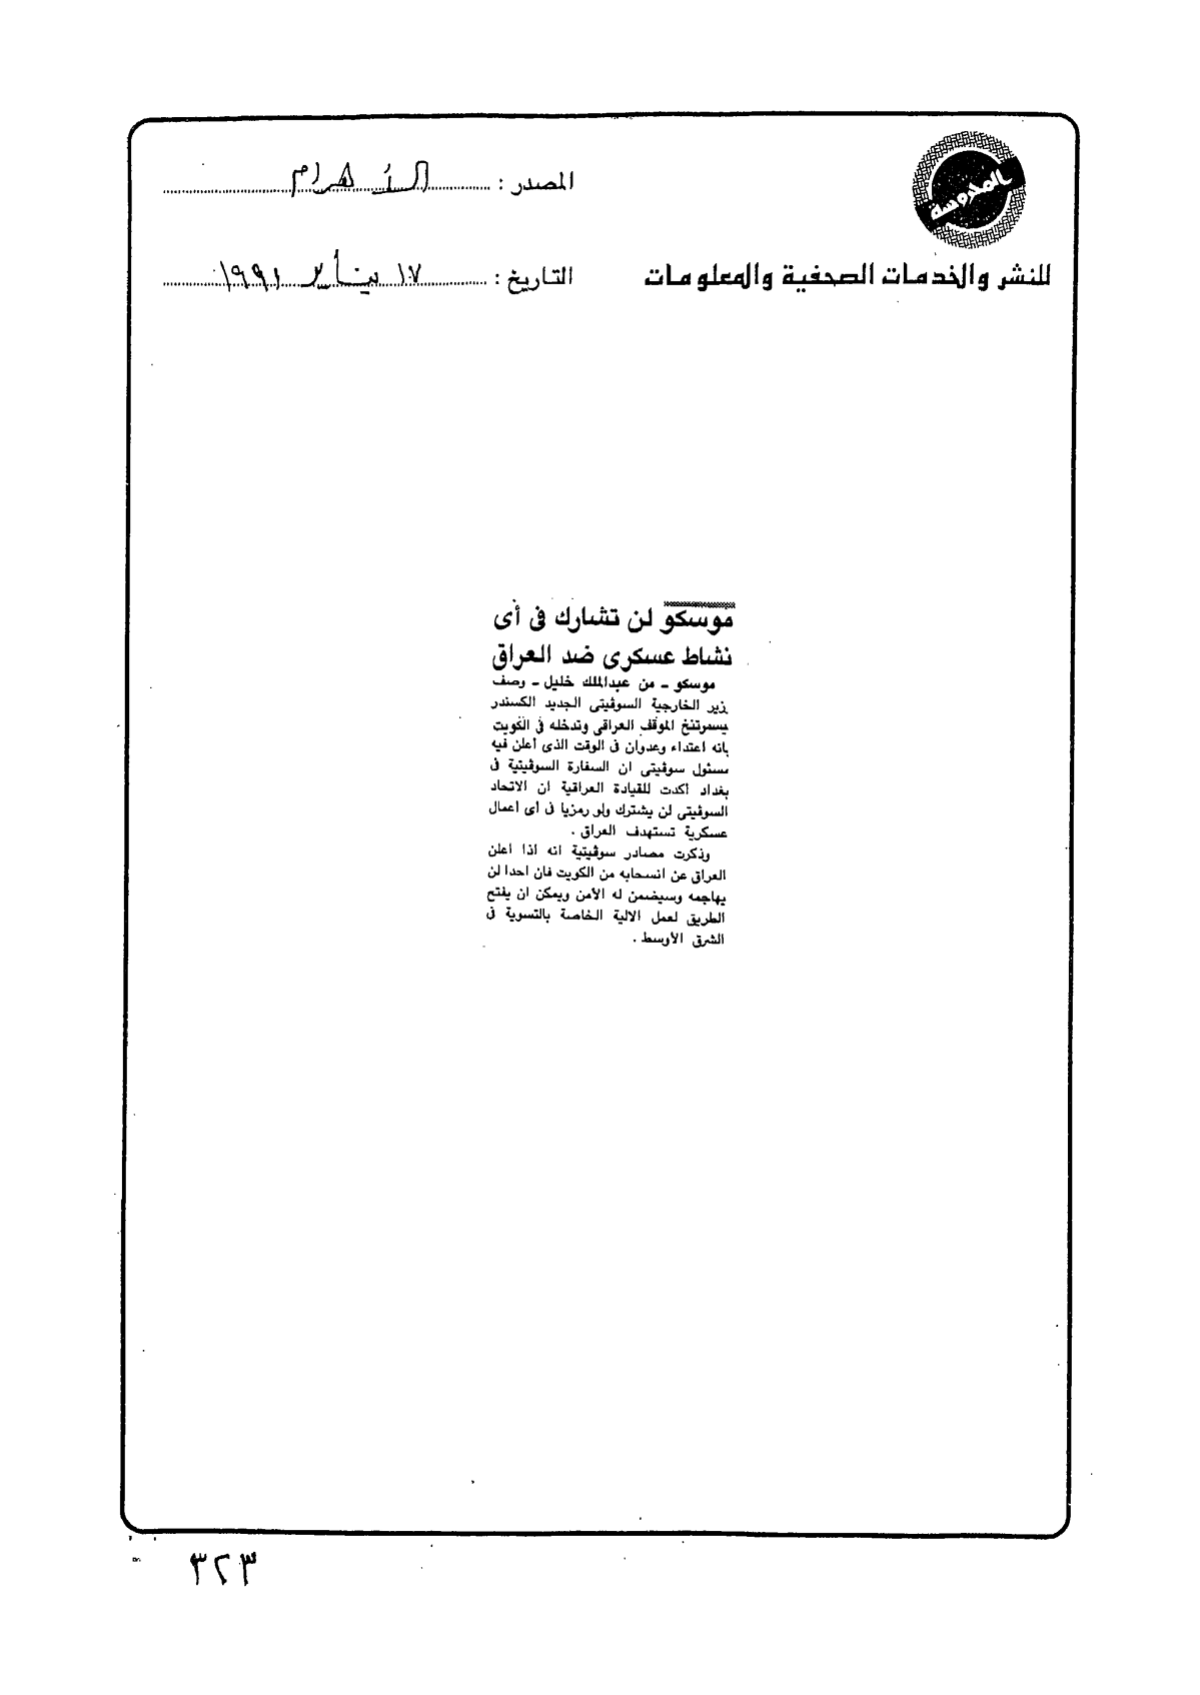 المحروسة
للنشر والخدمات الصحفية والمعلومات
المصدر : الأهرام
التاريخ : ١٧ يناير ١٩٩١
موسكو لن تشارك فى أى
نشاط عسكرى ضد العراق
موسكو - من عبدالملك خليل - وصف
زير الخارجية السوڤيتى الجديد الكسندر
يسمرتنخ الموقف العراقى وتدخله فى الكويت
بانه اعتداء وعدوان فى الوقت الذى أعلن فيه
مسئول سوڤيتى ان السفارة السوڤيتية فى
بغداد أكدت للقيادة العراقية ان الاتحاد
السوڤيتى لن يشترك ولو رمزيا فى أى أعمال
عسكرية تستهدف العراق .
وذكرت مصادر سوڤيتية انه اذا اعلن
العراق عن انسحابه من الكويت فان احدا لن
يهاجمه وسيضمن له الأمن ويمكن ان يفتح
الطريق لعمل الالية الخاصة بالتسوية فى
الشرق الأوسط .
٣٢٣